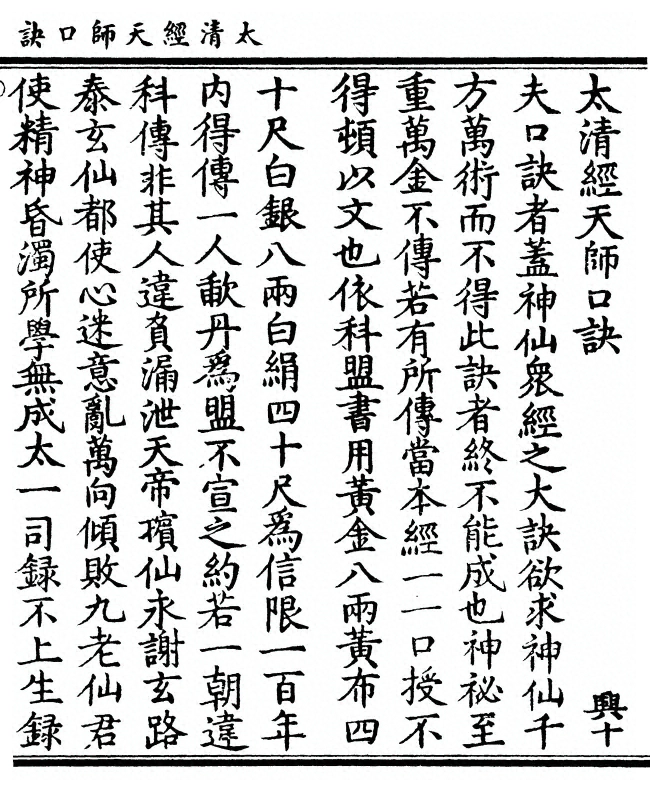 太清經天師口訣
太清經天師口訣
興十
夫口訣者蓋神仙衆經之大訣欲求神仙千
方萬術而不得此訣者終不能成也神祕至
重萬金不傳若有所傳當本經一一口授不
得頓以文也依科盟書用黃金八兩黃布四
十尺白銀八兩白絹四十尺爲信限一百年
內得傳一人歃丹爲盟不宣之約若一朝違
科傳非其人違負漏泄天帝擯仙永謝玄路
泰玄仙都使心迷意亂萬向傾敗九老仙君
使精神昏濁所學無成太一司録不上生録